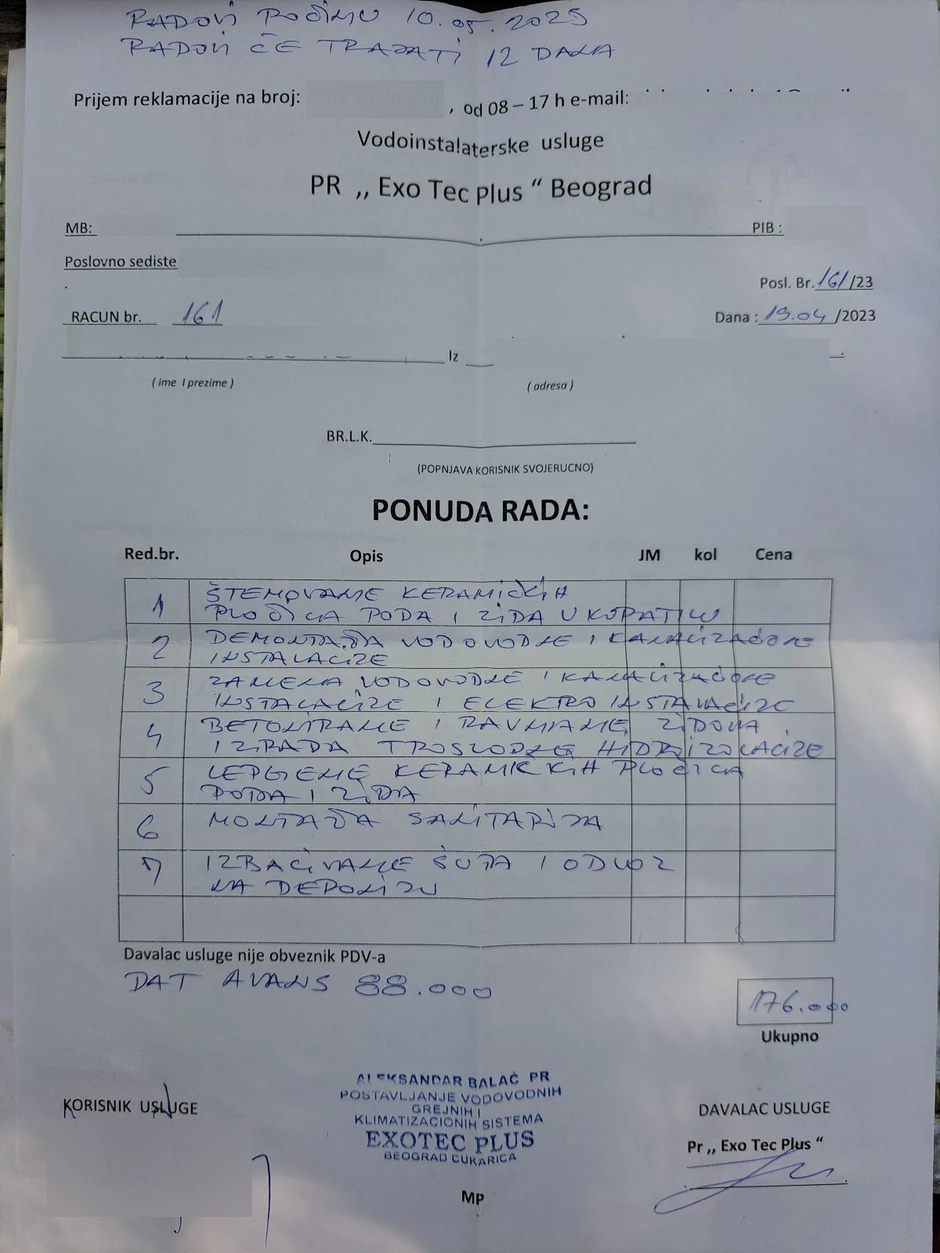 RADOVI POČINJU 10.05.2023
RADOVI ĆE TRAJATI 12 DANA
Prijem reklamacije na broj: , od 08 – 17 h e-mail:
Vodoinstalaterske usluge
PR „ Exo Tec Plus “ Beograd
MB: PIB :
Poslovno sediste
Posl. Br. 161/23
RACUN br. 161 Dana : 19.04 /2023
Iz
( ime I prezime ) ( adresa )
BR.L.K.
(POPNJAVA KORISNIK SVOJERUCNO)
PONUDA RADA:
Red.br. Opis JM kol Cena
1 ŠTEMOVANJE KERAMIČKIH
PLOČICA PODA I ZIDA U KUPATILU
2 DEMONTAŽA VODOVODNE I KANALIZACIONE
INSTALACIJE
3 ZAMENA VODOVODNE I KANALIZACIONE
INSTALACIJE I ELEKTRO INSTALACIJE
4 BETONIRANJE I RAVNANJE ZIDOVA,
IZRADA TROSLOJNE HIDROIZOLACIJE
5 LEPLJENJE KERAMIČKIH PLOČICA
PODA I ZIDA
6 MONTAŽA SANITARIJA
7 IZBACIVANJE ŠUTA I ODVOZ
NA DEPONIJU
Davalac usluge nije obveznik PDV-a
DAT AVANS 88.000
176.000
Ukupno
ALEKSANDAR BALAĆ PR
POSTAVLJANJE VODOVODNIH
GREJNIH I
KLIMATIZACIONIH SISTEMA
EXOTEC PLUS
BEOGRAD CUKARICA
KORISNIK USLUGE DAVALAC USLUGE
Pr „ Exo Tec Plus “
MP